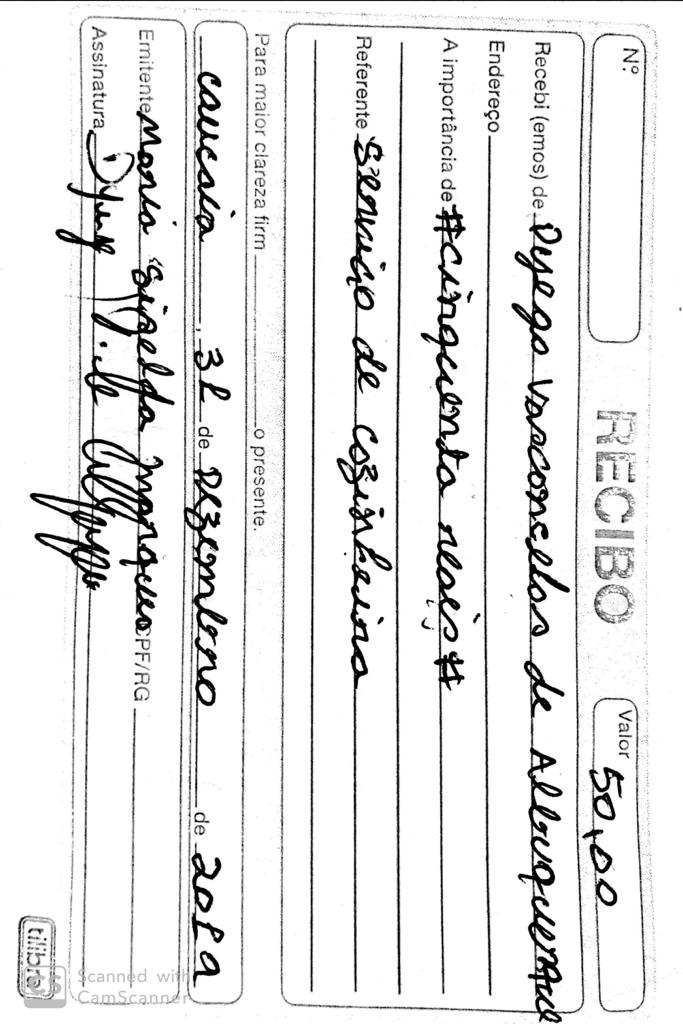 Nº
RECIBO
Valor 50,00
Recebi (emos) de Dyego Vasconcelos de Albuquerque
Endereço
A importância de #cinquenta reais#
Referente Serviço de cozinheira
Para maior clareza firm o presente.
Caucaia, 31 de Dezembro de 2019
Emitente Maria Sigelda Marques CPF/RG
Assinatura
tilibra
CS Scanned with
CamScanner